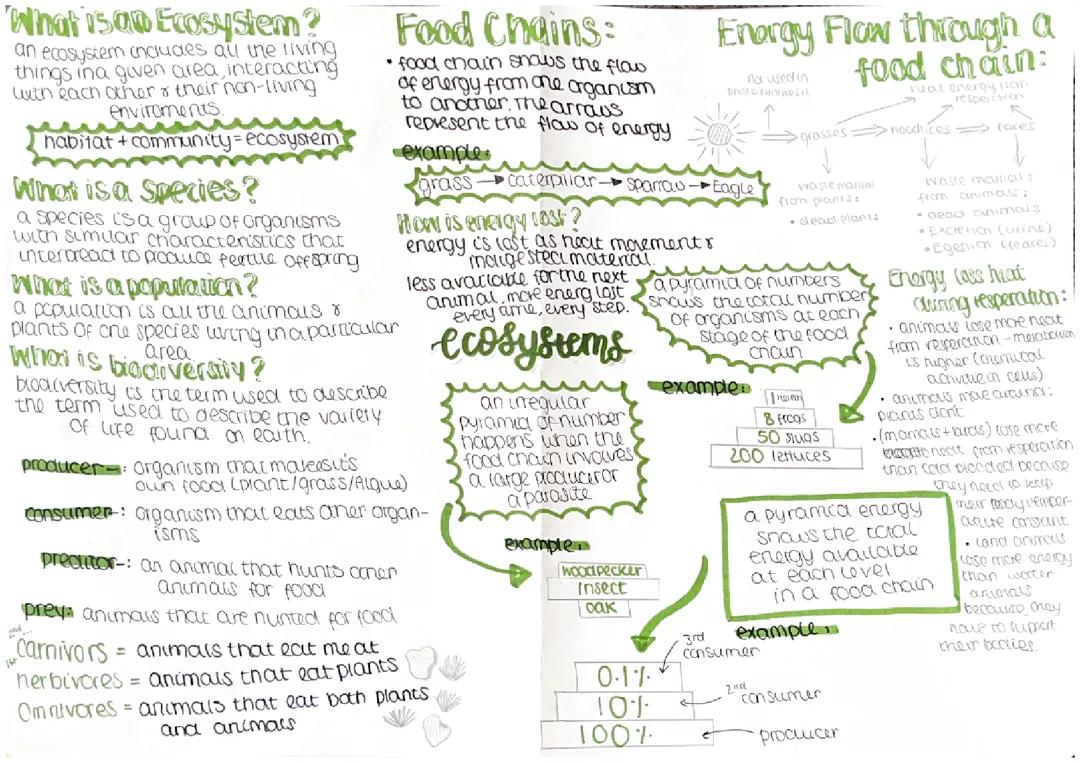 What is an Ecosystem?
an ecosystem includes all the living
things in a given area, interacting
with each other & their non-living
enviroments.
habitat + community = ecosystem
What is a Species?
a species is a group of organisms
with similar characteristics that
interbread to produce fertile offspring
What is a population?
a population is all the animals &
plants of one species living in a particular
area.
What is biodiversity?
biodiversity is the term used to describe
the term used to describe the variety
of life found on earth.
producer-: organism that makes it's
own food (plant/grass/Algue)
consumer-: organism that eats other organ-
isms
preditor-: an animal that hunts other
animals for food
prey: animals that are hunted for food
Carnivors = animals that eat meat
herbivores = animals that eat plants
Omnivores = animals that eat both plants
and animals
Food Chains:
• food chain shows the flow
of energy from one organism
to another, the arrows
represent the flow of energy
example:
grass → caterpillar → sparrow → Eagle
How is energy lost?
energy is lost as heat movement &
material.
less available for the next
animal, more energ lost
every time, every step.
ecosystems
an irregular
pyramid of number
happens when the
food chain involves
a large producer or
a parasite
example:
woodpecker
insect
oak
Energy Flow through a
food chain:
not used in
photosynthesis
heat energy from
resperation
grasses ⇒ woodlices ⇒ foxes
waste material
from plants:
• dead plants
waste materials
from animals:
• dead animals
• Excretion (urine)
• Egestion (feaces)
a pyramid of numbers
shows the total number
of organisms at each
stage of the food
chain
example:
1
8 frogs
50 slugs
200 lettuces
Energy loss heat
during resperation:
• animals lose more heat
from resperation - metabolism
is higher (chemical
activitie in cells)
• animals move around:
plants don't
• (mamals + birds) lose more
heat from resperation
than cold blooded because
they need to keep
their body temper-
ature constant
• land animals
lose more energy
than water
animals
because they
have to support
their bodies.
a pyramid energy
shows the total
energy available
at each level
in a food chain
example:
3rd
consumer
0.1%
10%
2nd
consumer
100%
producer